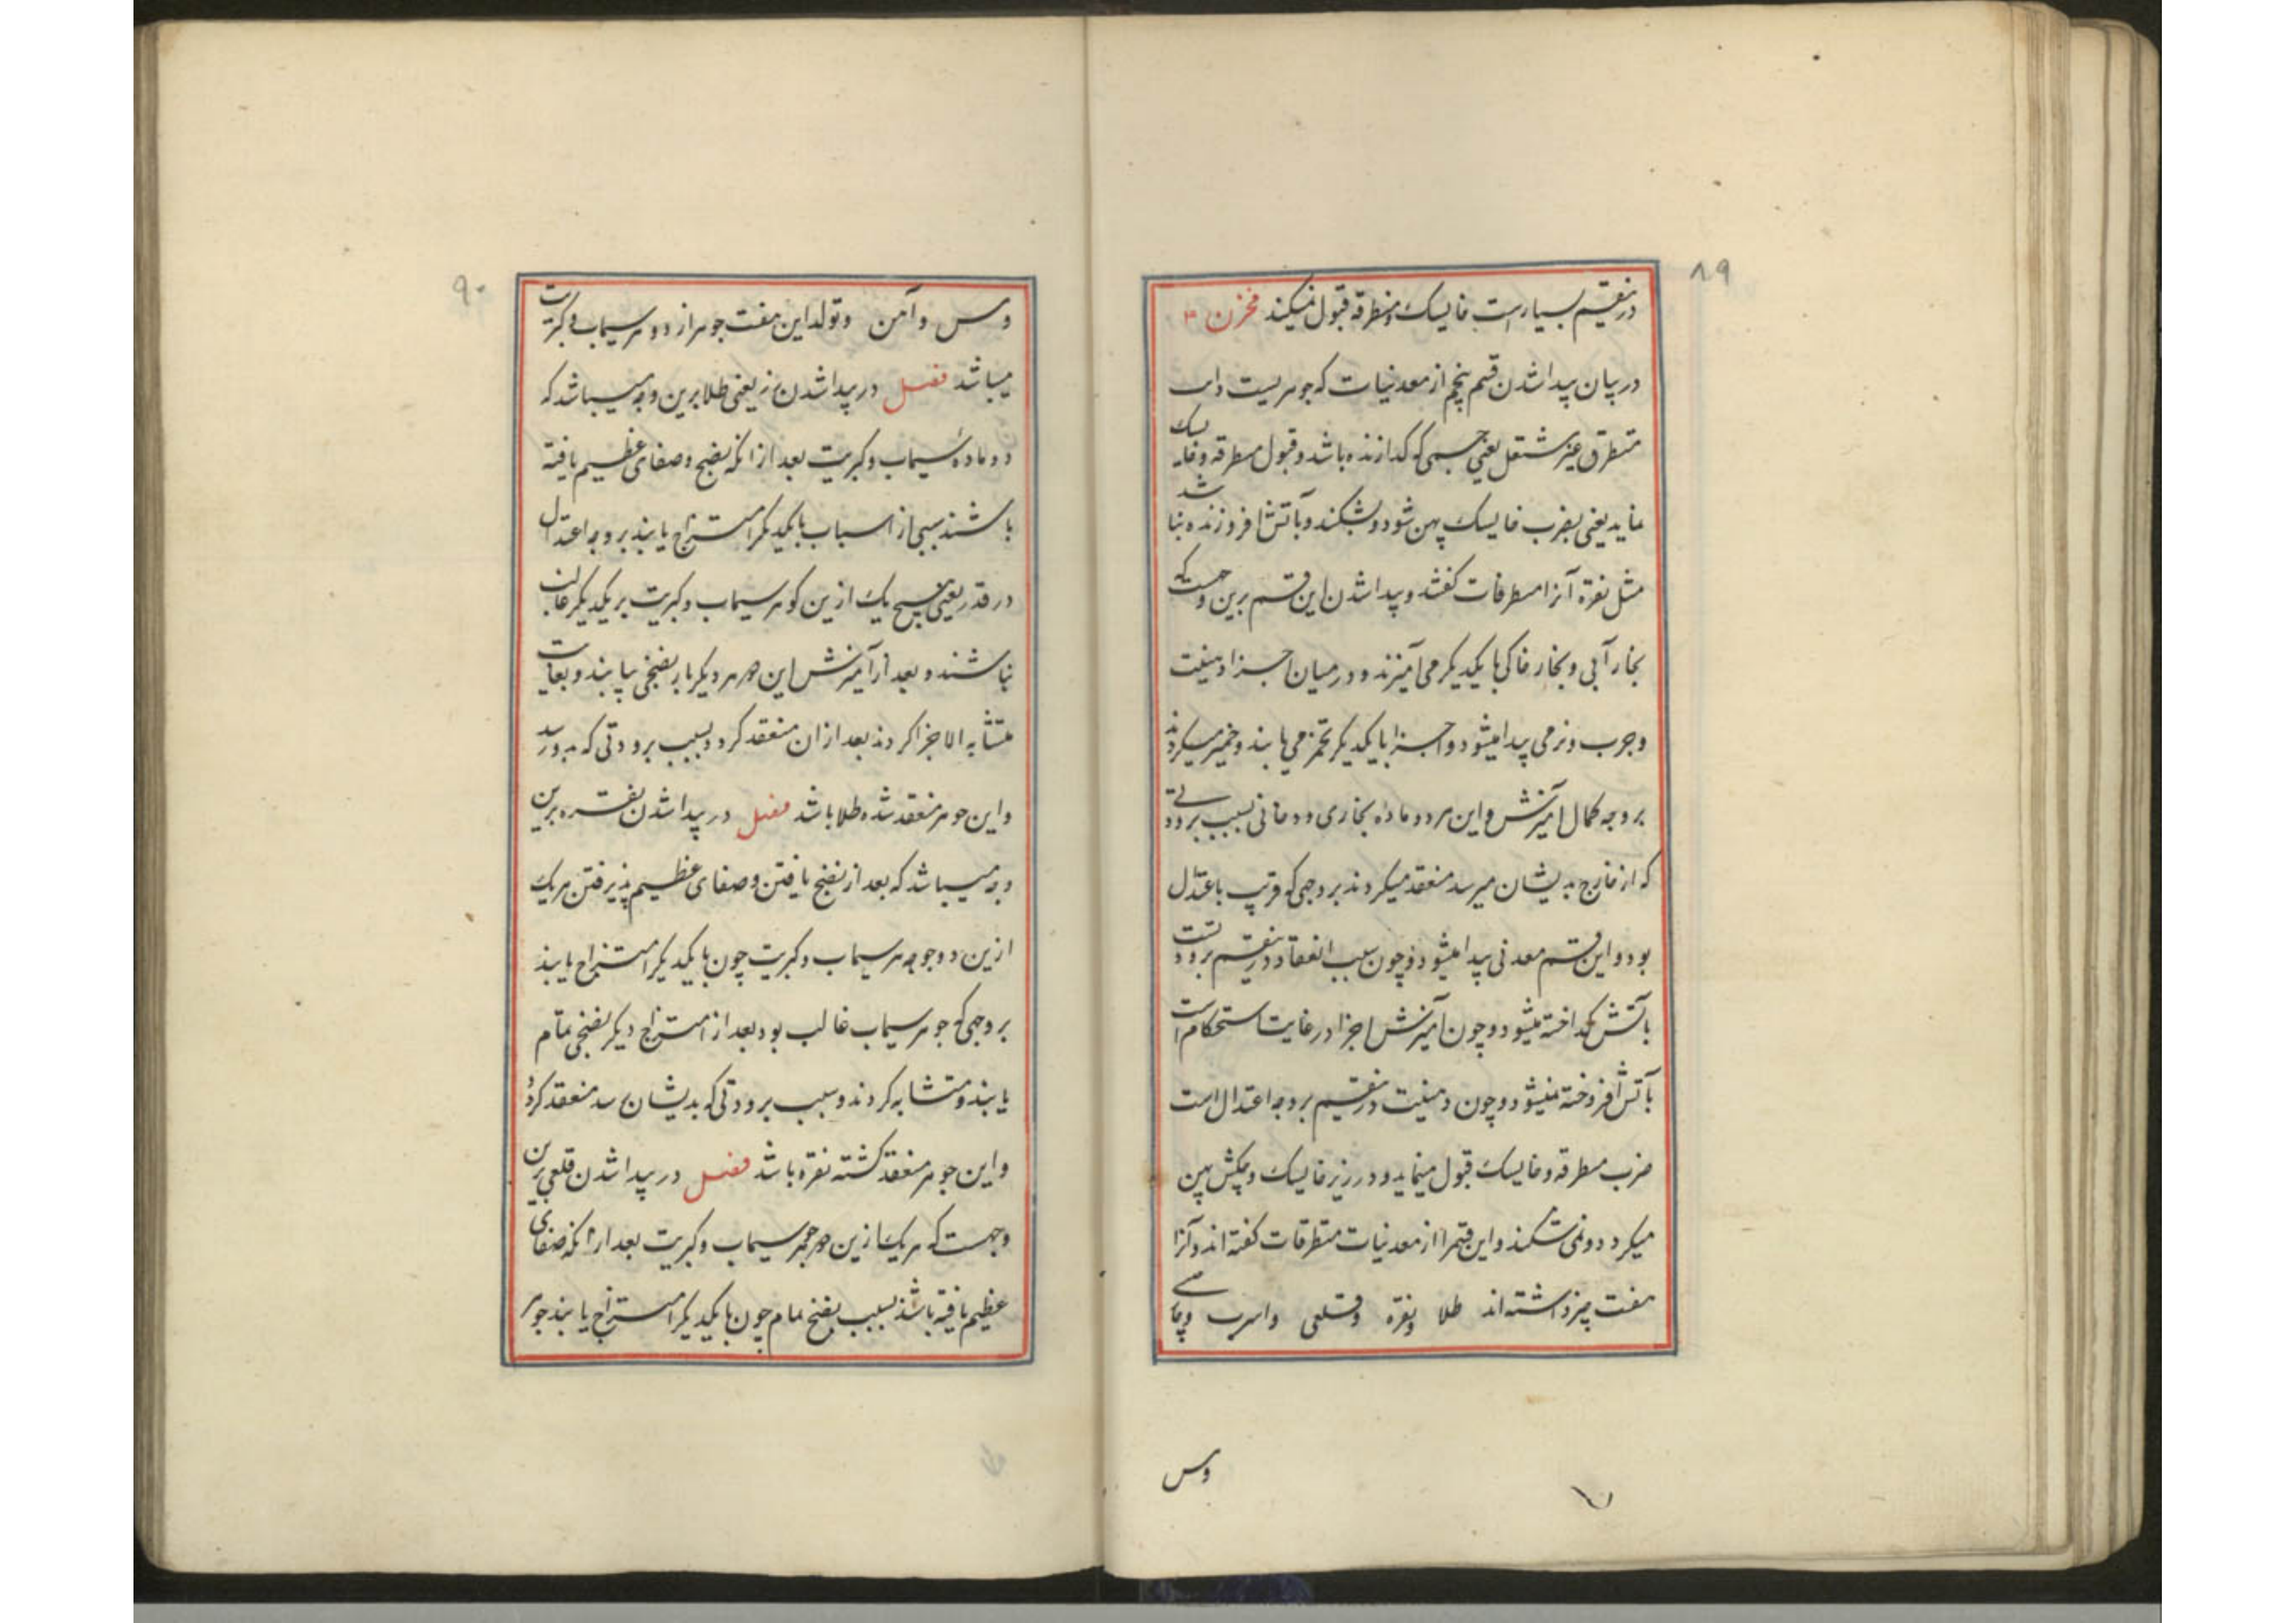 ۸۹
درینقسم بسیار است خایسک و مطرقه قبول نمیکند مخزن ۳
در بیان پیدا شدن قسم پنجم از معدنیات که جوهریست ذایب
متطرق غیر مشتعل یعنی جسمی که گدازنده باشد و قبول مطرقه و خایسک
نماید یعنی بضرب خایسک پهن شود و نشکند و بآتش افروزنده نباشد
مثل نقره آنرا مطرقات گفتند و پیدا شدن این قسم برین وجهست که
بخار آبی و بخار خاکی با یکدیگر می آمیزند و در میان اجزا دهنیت
و چرب و نرمی پیدا میشود و اجزا با یکدیگر تخمر می یابند و خمیر میگردند
بر وجه کمال آمیزش و این هر دو ماده بخاری و دخانی بسبب برودتی
که از خارج بدیشان میرسد منعقد میگردند بر وجهی که قریب باعتدال
بود و این قسم معدنی پیدا میشود و چون سبب انعقاد درینقسم برودتست
بآتش گداخته میشود و چون آمیزش اجزا در غایت استحکام است
بآتش افروخته نمیشود و چون دهنیت درینقسم بر وجه اعتدال است
ضرب مطرقه و خایسک قبول مینماید و در زیر خایسک و چکش پهن
میگردد و نمی شکند و این قسم را از معدنیات متطرقات گفته اند و آنرا
هفت چیز داشته اند طلا و نقره و قلعی و اسرب و چینی
و مس
۹۰
و مس و آهن و تولد این هفت جوهر از دو جوهر سیماب و کبریت
میباشد فصل در پیدا شدن زر یعنی طلا برین وجه میباشد که
دو ماده سیماب و کبریت بعد از آنکه نضج و صفای عظیم یافته
باشند بسببی از اسباب با یکدیگر امتزاج یابند بر وجه اعتدال
در قدر یعنی هیچ یک ازین گوهر سیماب و کبریت بر یکدیگر غالب
نباشند و بعد از آمیزش این جوهر دیگر بار بنضجی بیابند و بغایت
متشابه الاجزا گردند بعد از ان منعقد گردد بسبب برودتی که بدو رسد
و این جوهر منعقد شده طلا باشد فصل در پیدا شدن نقره برین
وجه میباشد که بعد از نضج یافتن و صفای عظیم پذیرفتن هر یک
ازین دو جوهر سیماب و کبریت چون با یکدیگر امتزاج یابند
بر وجهی که جوهر سیماب غالب بود بعد از امتزاج دیگر بنضجی تمام
یابند و متشابه گردند و بسبب برودتی که بدیشان رسد منعقد گردد
و این جوهر منعقد گشته نقره باشد فصل در پیدا شدن قلعی برین
وجهست که هر یک ازین جوهر سیماب و کبریت بعد از انکه صفای
عظیم یافته باشند بسبب نضج تمام چون با یکدیگر امتزاج یابند جوهر